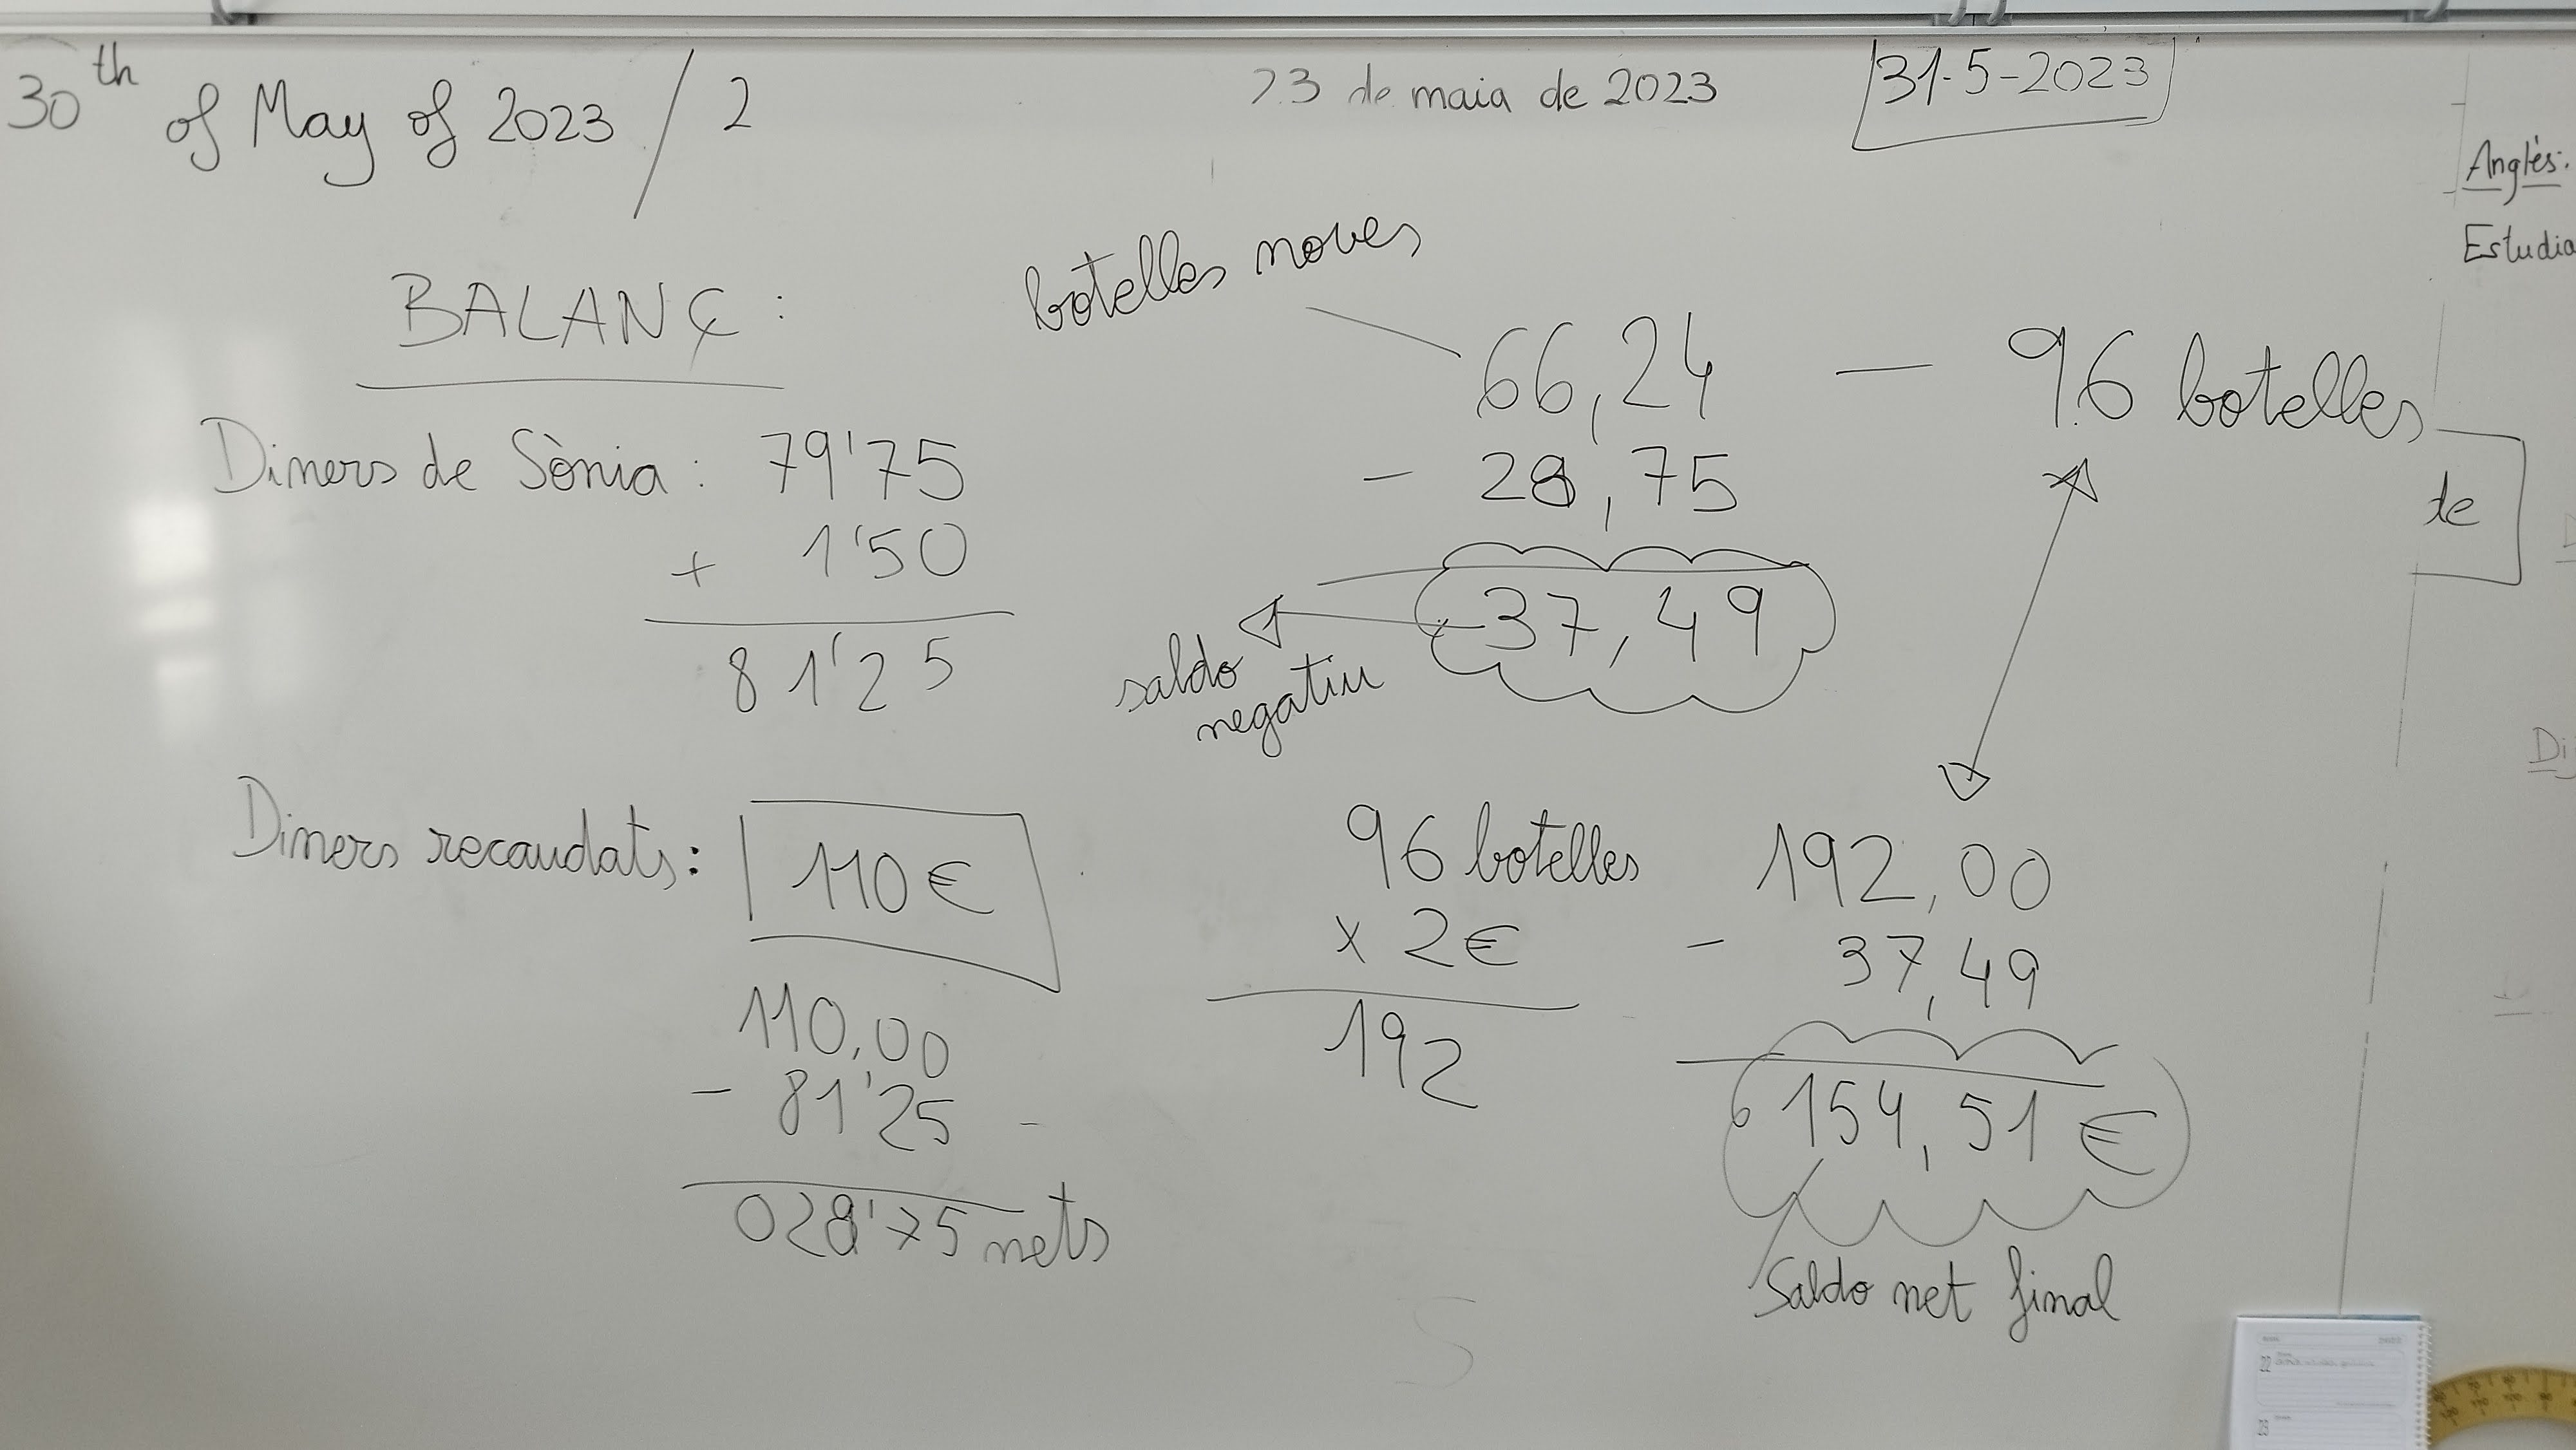 30th of May of 2023 / 2
23 de maia de 2023
31-5-2023
BALANÇ:
Diners de Sònia: 79'75
+ 1'50
81'25
Diners recaudats: 110€
110,00
- 81'25 -
028'75 nets
botelles noves
66,24 — 96 botelles
- 28,75
-37,49
saldo
negatiu
96 botelles
x 2€
192
192,00
- 37,49
154,51 €
Saldo net final
Anglès:
Estudia
de
Di
22
23